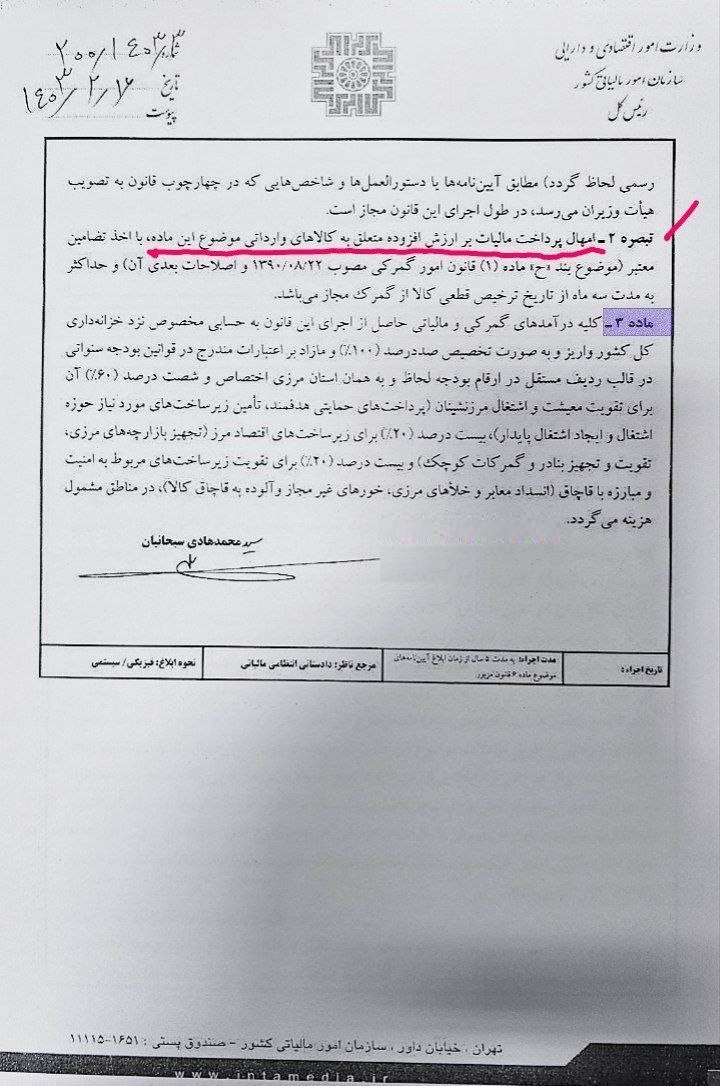 وزارت امور اقتصادی و دارایی
سازمان امور مالیاتی کشور
رئیس کل
شماره ۲۰۰/۱۴۰۳/۳
تاریخ ۱۴۰۳/۲/۱۶
پیوست
رسمی لحاظ گردد) مطابق آیین‌نامه‌ها یا دستورالعمل‌ها و شاخص‌هایی که در چهارچوب قانون به تصویب
هیأت وزیران می‌رسد، در طول اجرای این قانون مجاز است.
تبصره ۲ـ امهال پرداخت مالیات بر ارزش افزوده متعلق به کالاهای وارداتی موضوع این ماده، با اخذ تضامین
معتبر (موضوع بند «ح» ماده (۱) قانون امور گمرکی مصوب ۱۳۹۰/۰۸/۲۲ و اصلاحات بعدی آن) و حداکثر
به مدت سه ماه از تاریخ ترخیص قطعی کالا از گمرک مجاز می‌باشد.
ماده ۳ـ کلیه درآمدهای گمرکی و مالیاتی حاصل از اجرای این قانون به حسابی مخصوص نزد خزانه‌داری
کل کشور واریز و به صورت تخصیص صددرصد (۱۰۰٪) و مازاد بر اعتبارات مندرج در قوانین بودجه سنواتی
در قالب ردیف مستقل در ارقام بودجه لحاظ و به همان استان مرزی اختصاص و شصت درصد (۶۰٪) آن
برای تقویت معیشت و اشتغال مرزنشینان (پرداخت‌های حمایتی هدفمند، تأمین زیرساخت‌های مورد نیاز حوزه
اشتغال و ایجاد اشتغال پایدار)، بیست درصد (۲۰٪) برای زیرساخت‌های اقتصاد مرز (تجهیز بازارچه‌های مرزی،
تقویت و تجهیز بنادر و گمرکات کوچک) و بیست درصد (۲۰٪) برای تقویت زیرساخت‌های مربوط به امنیت
و مبارزه با قاچاق (انسداد معابر و خلأهای مرزی، خورهای غیر مجاز وآلوده به قاچاق کالا)، در مناطق مشمول
هزینه می‌گردد.
سیدمحمدهادی سبحانیان
تاریخ اجراء:
مدت اجراء: به مدت ۵ سال از زمان ابلاغ آیین‌نامه‌های
موضوع ماده ۶ قانون مزبور
مرجع ناظر: دادستانی انتظامی مالیاتی
نحوه ابلاغ: فیزیکی/ سیستمی
تهران ، خیابان داور ، سازمان امور مالیاتی کشور - صندوق پستی : ۱۶۵۱-۱۱۱۱۵
www.intamedia.ir